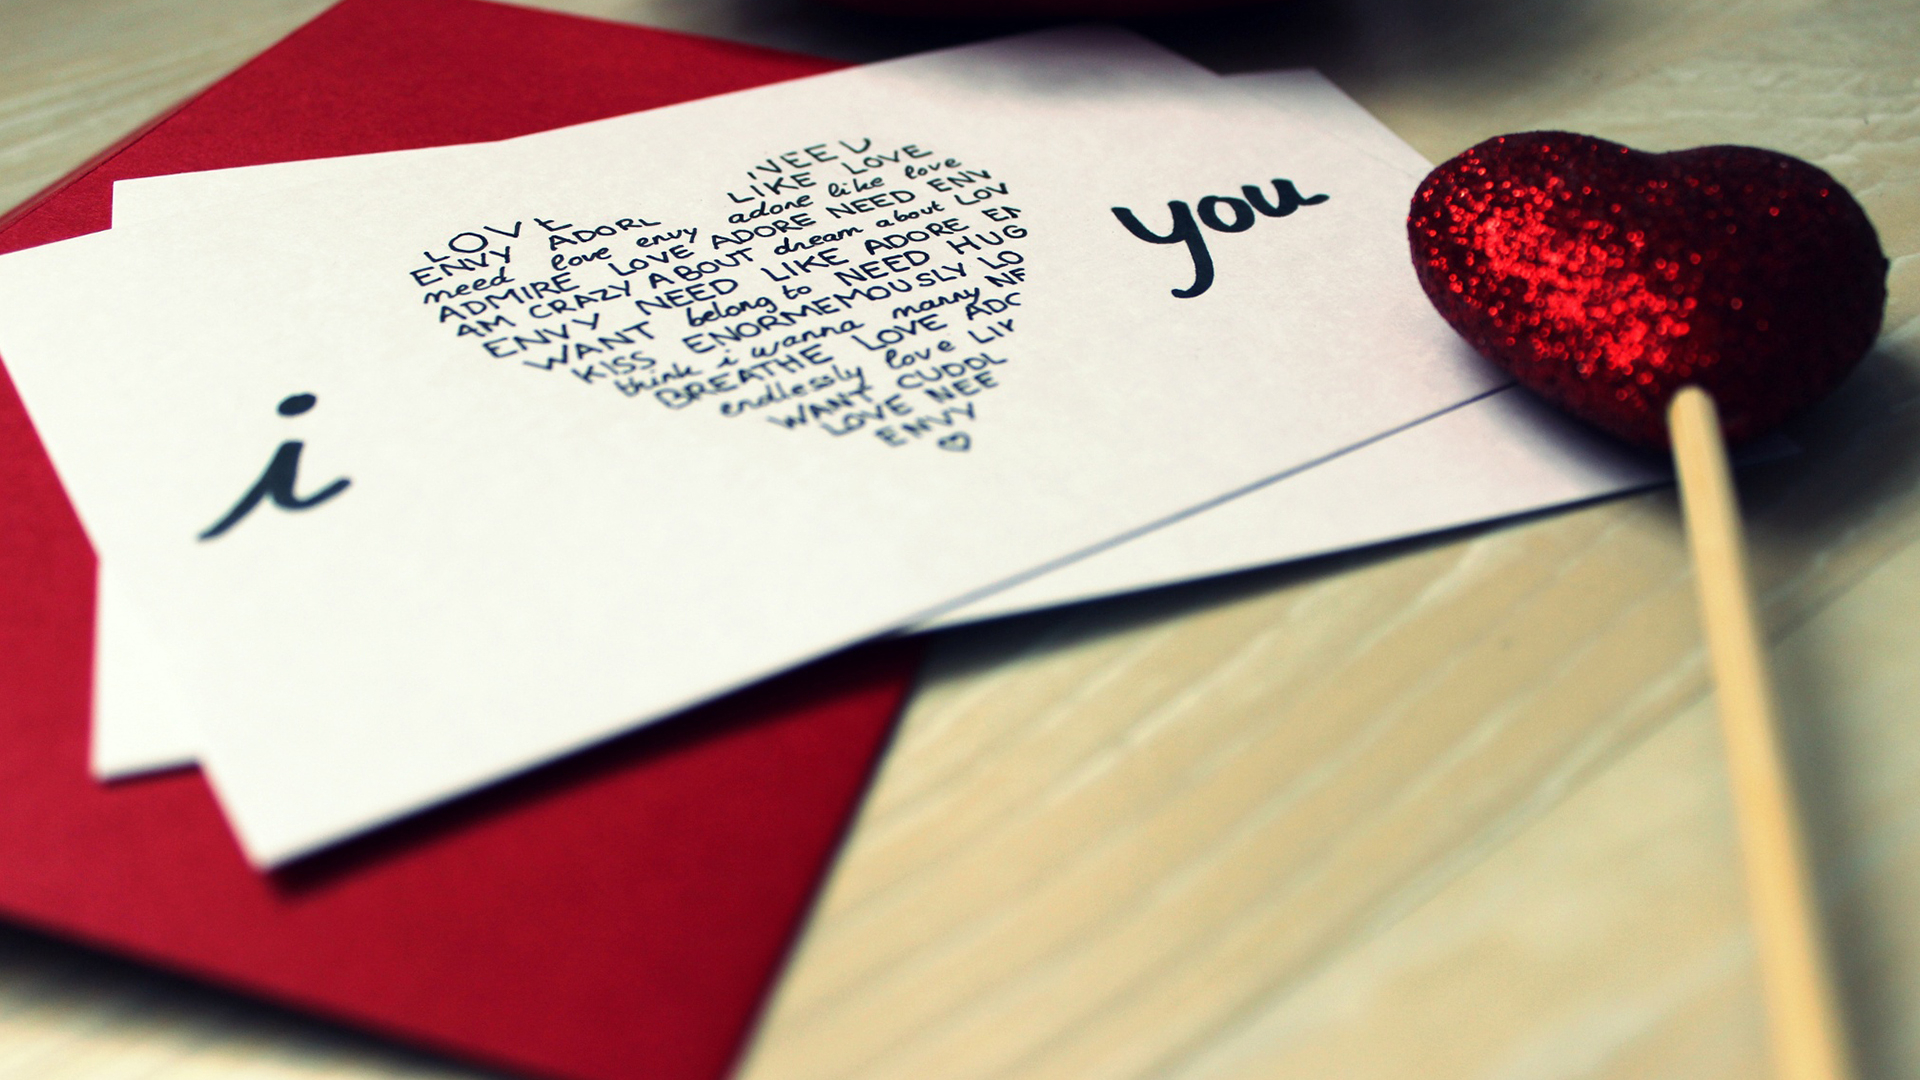 i
LOVE
ENVY ADORL NEE U
need love envy LIKE LOVE
ADMIRE LOVE ADORE adore like love
AM CRAZY ABOUT dream about NEED ENV
ENVY NEED LIKE ADORE LOV
WANT belong to NEED HUG
KISS ENORMEMOUSLY LO
think i wanna marry
BREATHE LOVE ADC
endlessly love LIK
WANT CUDDL
LOVE NEE
ENVY
you